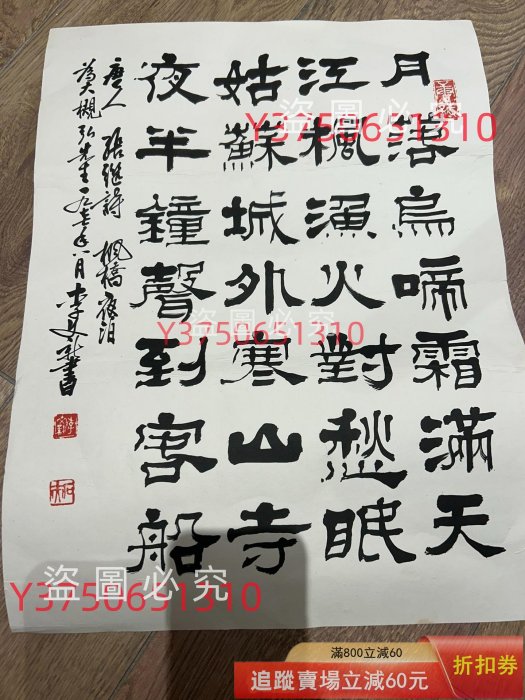 月落烏啼霜滿天
江楓漁火對愁眠
姑蘇城外寒山寺
夜半鐘聲到客船
唐人 張继詩 楓橋夜泊
大槻弘先生一九七年八月 李書
盜圖必究
Y3750651310
盜圖必究
Y3750651310
盜圖必究
Y3750651310
滿800立減60
追蹤賣場立減60元
折扣券